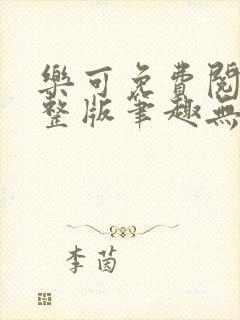 樂可免費閱
整版筆趣無
李茵